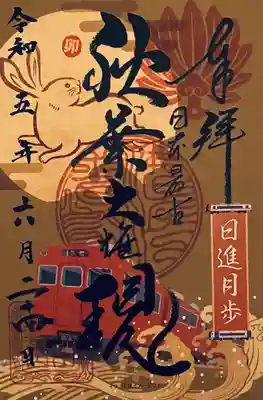 奉拝
日本最古
秋葉大権現
令和五年六月二十四日
日進月歩
卯